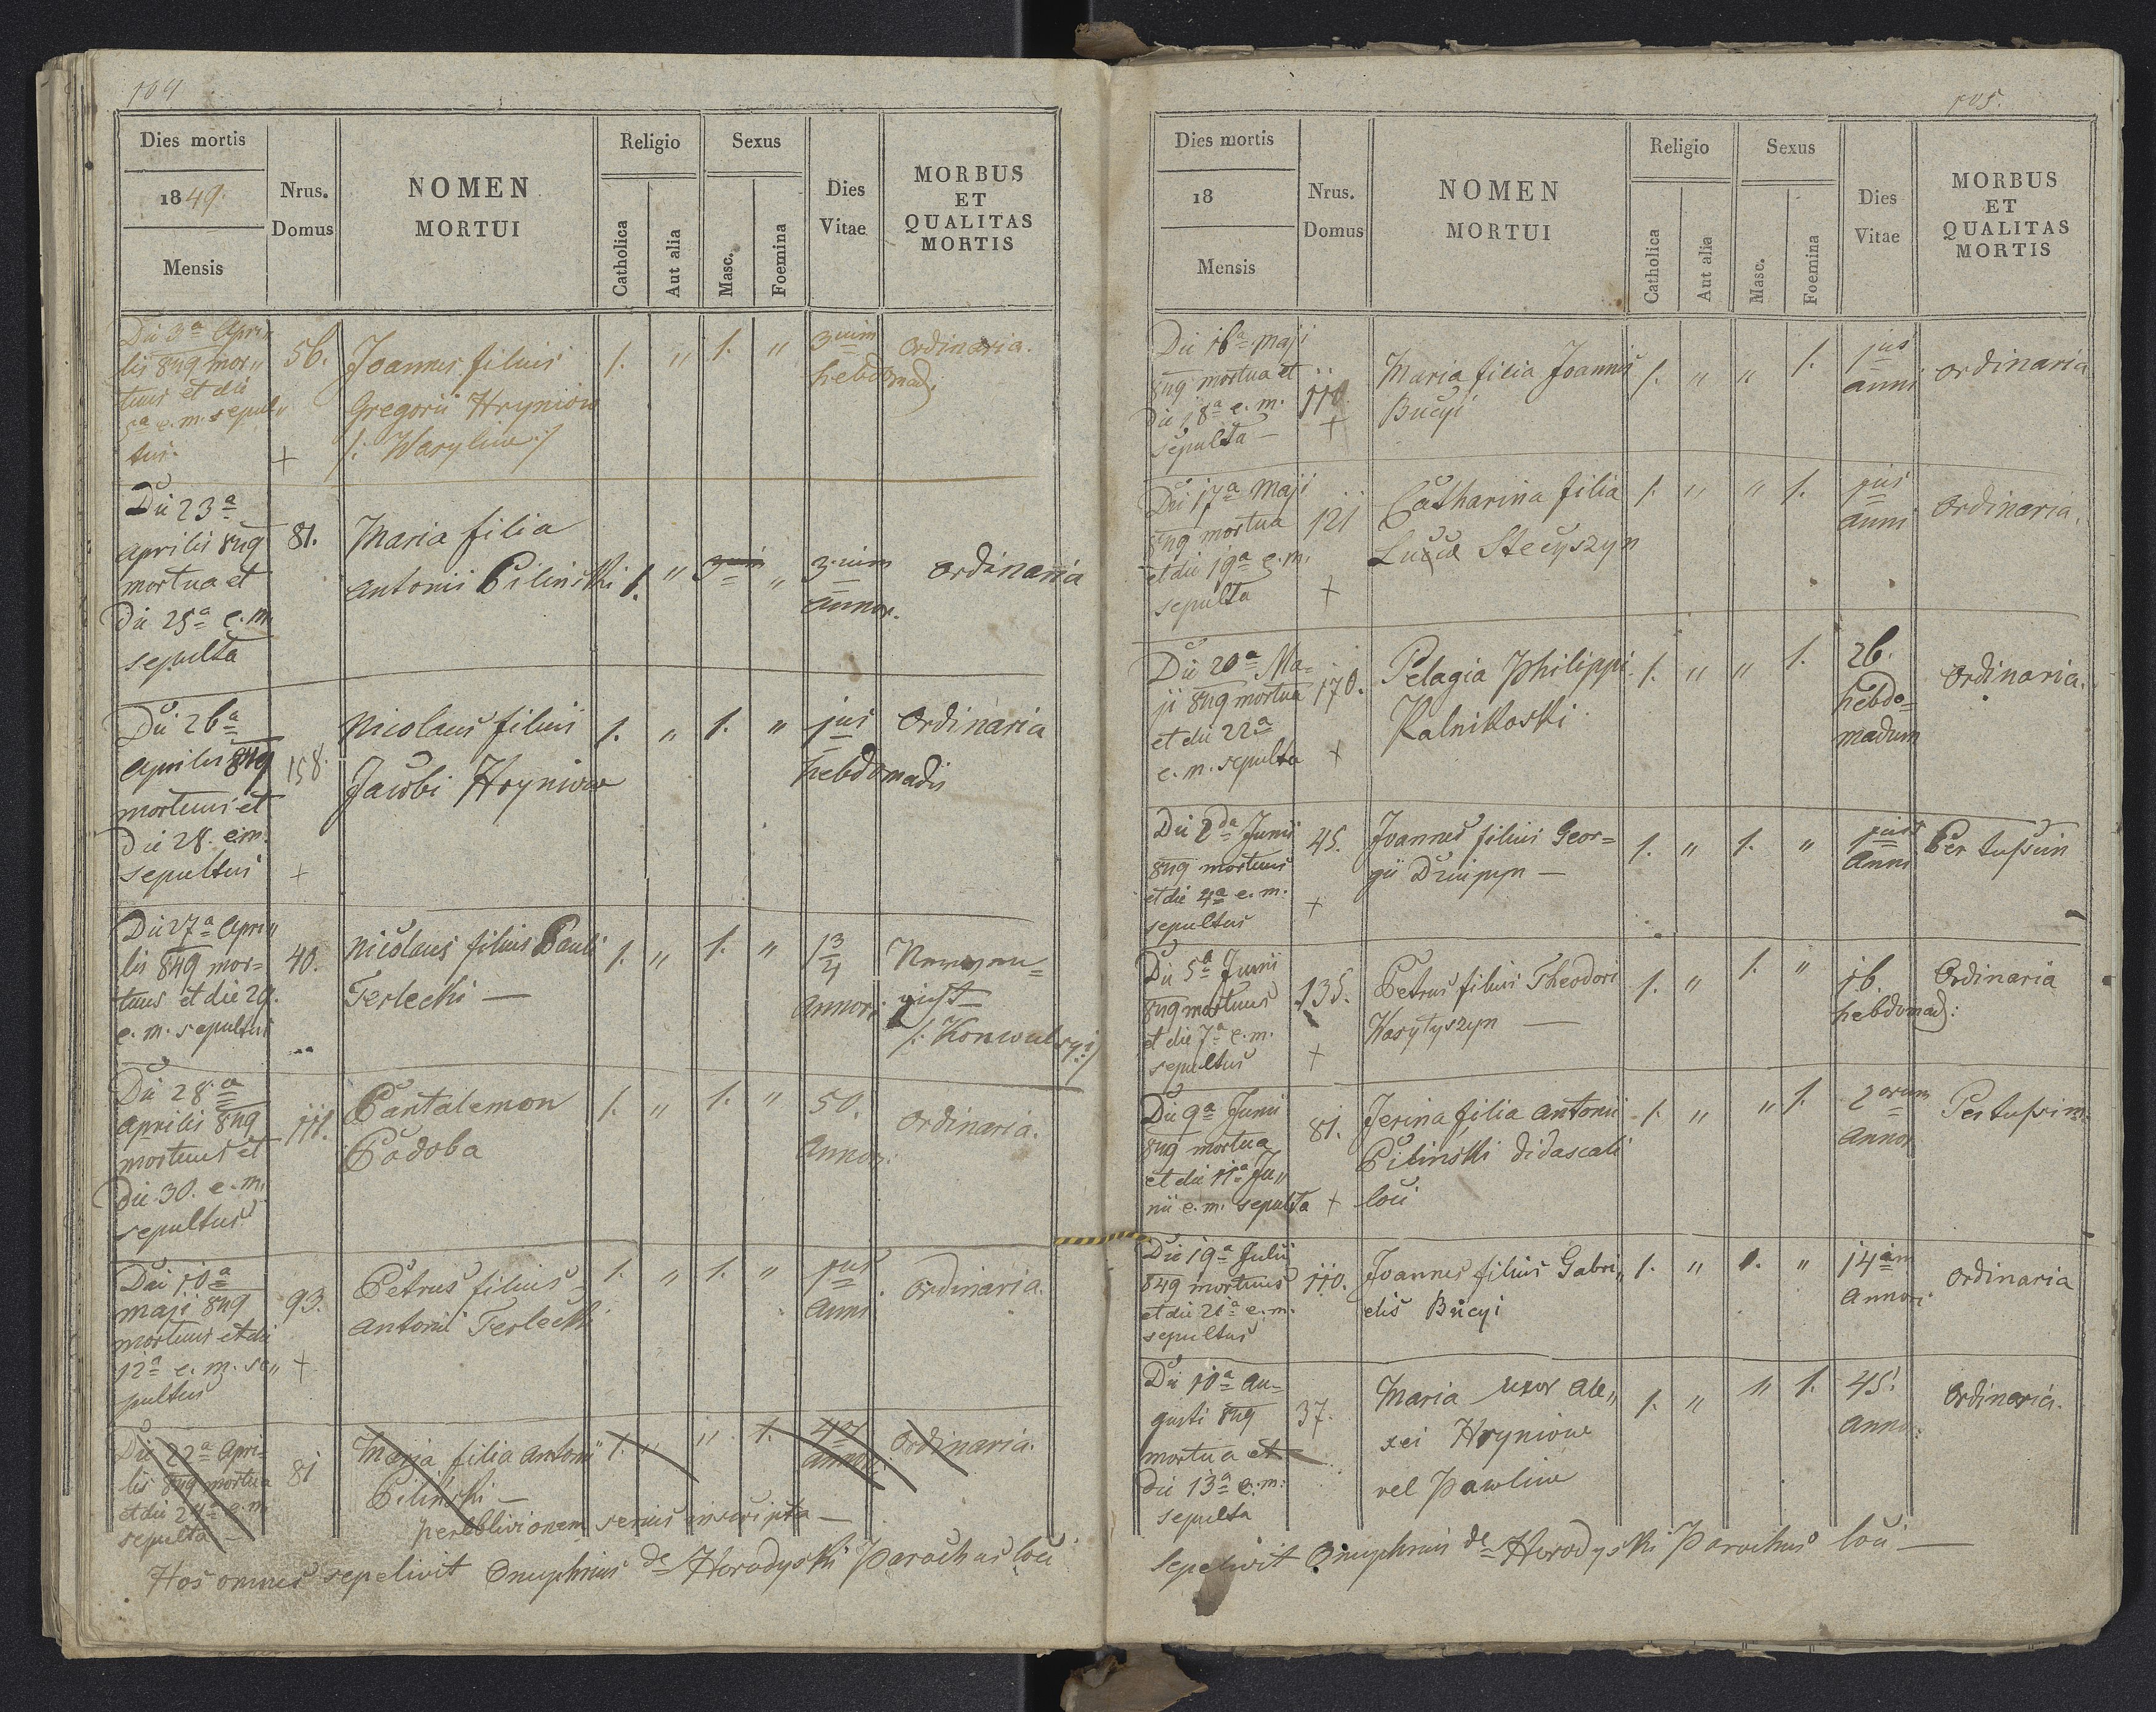 104
Dies mortis
1849.
Mensis
Nrus.
Domus
NOMEN
MORTUI
Religio
Catholica
Aut alia
Sexus
Masc.
Foemina
Dies
Vitae
MORBUS
ET
QUALITAS
MORTIS
Die 3a Apri„
lis 849 mor„
tuus et die
5a e. m. sepul„
tus.
56.
+
Joannes filius
Gregorii Hryniow
/: Wasyliw :/
1. „ 1. „
3um
hebdomad:
Ordinaria.
Die 23a
Aprilis 849
mortua et
die 25a e. m.
sepulta
81.
Maria filia
Antonii Pilinski
1. „ „
3um
annor.
Ordinaria
Die 26a
Aprilis 849
mortuus et
die 28. e.m.
sepultus
158.
+
Nicolaus filius
Jacobi Hryniow
1. „ 1. „
jus
hebdomadis
Ordinaria
Die 27a Apri„
lis 849 mor=
tuus et die 29.
e. m. sepultus
40.
Nicolaus filius Pauli
Terlecki —
1. „ 1. „
1 3/4
Annor:
/: Konwulsyi :/
Die 28a
Aprilis 849
mortuus et
die 30. e. m.
sepultus
111.
Pantalemon
Podoba
1. „ 1. „
50.
Annor:
Ordinaria.
Die 10a
Maji 849
mortuus et die
12a e. m. se„
pultus
93.
+
Petrus filius
Antonii Terlecki
1. „ 1. „
jus
Anni
Ordinaria.
Die 22a Apri-
lis 849 mortua
et die 24a e. m.
sepulta —
81
Maria filia Antonii
Pilinski —
1. „ „ 1.
4or
annor.
Ordinaria.
per oblivionem serius inscripta —
Hos omnes sepelivit Onuphrius de Horodyski Parochus loci
105.
Dies mortis
18
Mensis
Nrus.
Domus
NOMEN
MORTUI
Religio
Catholica
Aut alia
Sexus
Masc.
Foemina
Dies
Vitae
MORBUS
ET
QUALITAS
MORTIS
Die 16a Maji
849 mortua et
die 18a e. m.
sepulta —
110.
+
Maria filia Joannis
Bucyi
1. „ „ 1.
jus
anni
Ordinaria
Die 17a Maji
849 mortua
et die 19a e. m.
sepulta
121
+
Catharina filia
Lucae Stecyszyn
1. „ „ 1.
jus
anni
Ordinaria.
Die 20a Ma=
ji 849 mortua
et die 22a
e. m. sepulta
170.
+
Pelagia Philippi
Kalnikoski
1. „ „ 1.
26.
hebdo=
madum
Ordinaria.
Die 2da Junii
849 mortuus
et die 4a e. m.
sepultus
45.
+
Joannes filius Geor=
gii —
1. „ 1. „
jus
Anni
Per tussim
Die 5a Junii
849 mortuus
et die 7a e. m.
sepultus
135.
+
Petrus filius Theodori
Wasytyszyn —
1. „ 1. „
16.
hebdomad:
Ordinaria
Die 9a Junii
849 mortua
et die 11a Ju„
nii e. m. sepulta
81.
+
Jerina filia Antonii
Pilinski didascali
loci
1. „ „ 1.
2orum
Annor
Per tussim
Die 19a Julii
849 mortuus
et die 21a e. m.
sepultus
110.
Joannes filius Gabri„
elis Bucyi
1. „ 1. „
14am
Annor:
Ordinaria
Die 10a Au=
gusti 849
mortua et
die 13a e. m:
sepulta
37.
Maria uxor Ale„
xei Hryniow
vel Pawliw
1. „ „ 1.
45.
Annor:
Ordinaria.
Sepelivit Onuphrius de Horodyski Parochus loci —